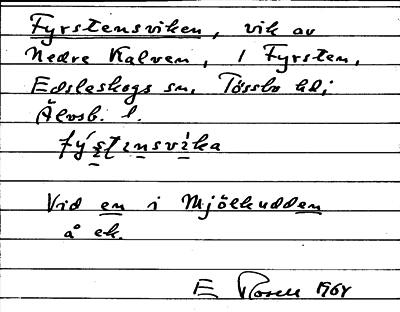 Fyrstensviken, vik av
Nedre Kalven, i Fyrsten,
Edsleskogs sn, Tössbo hd,
Älvsb. l.
fýs̱ṯeṉsvìka
Vid en i Mjölkudden
å ek.
E Rosell 1968